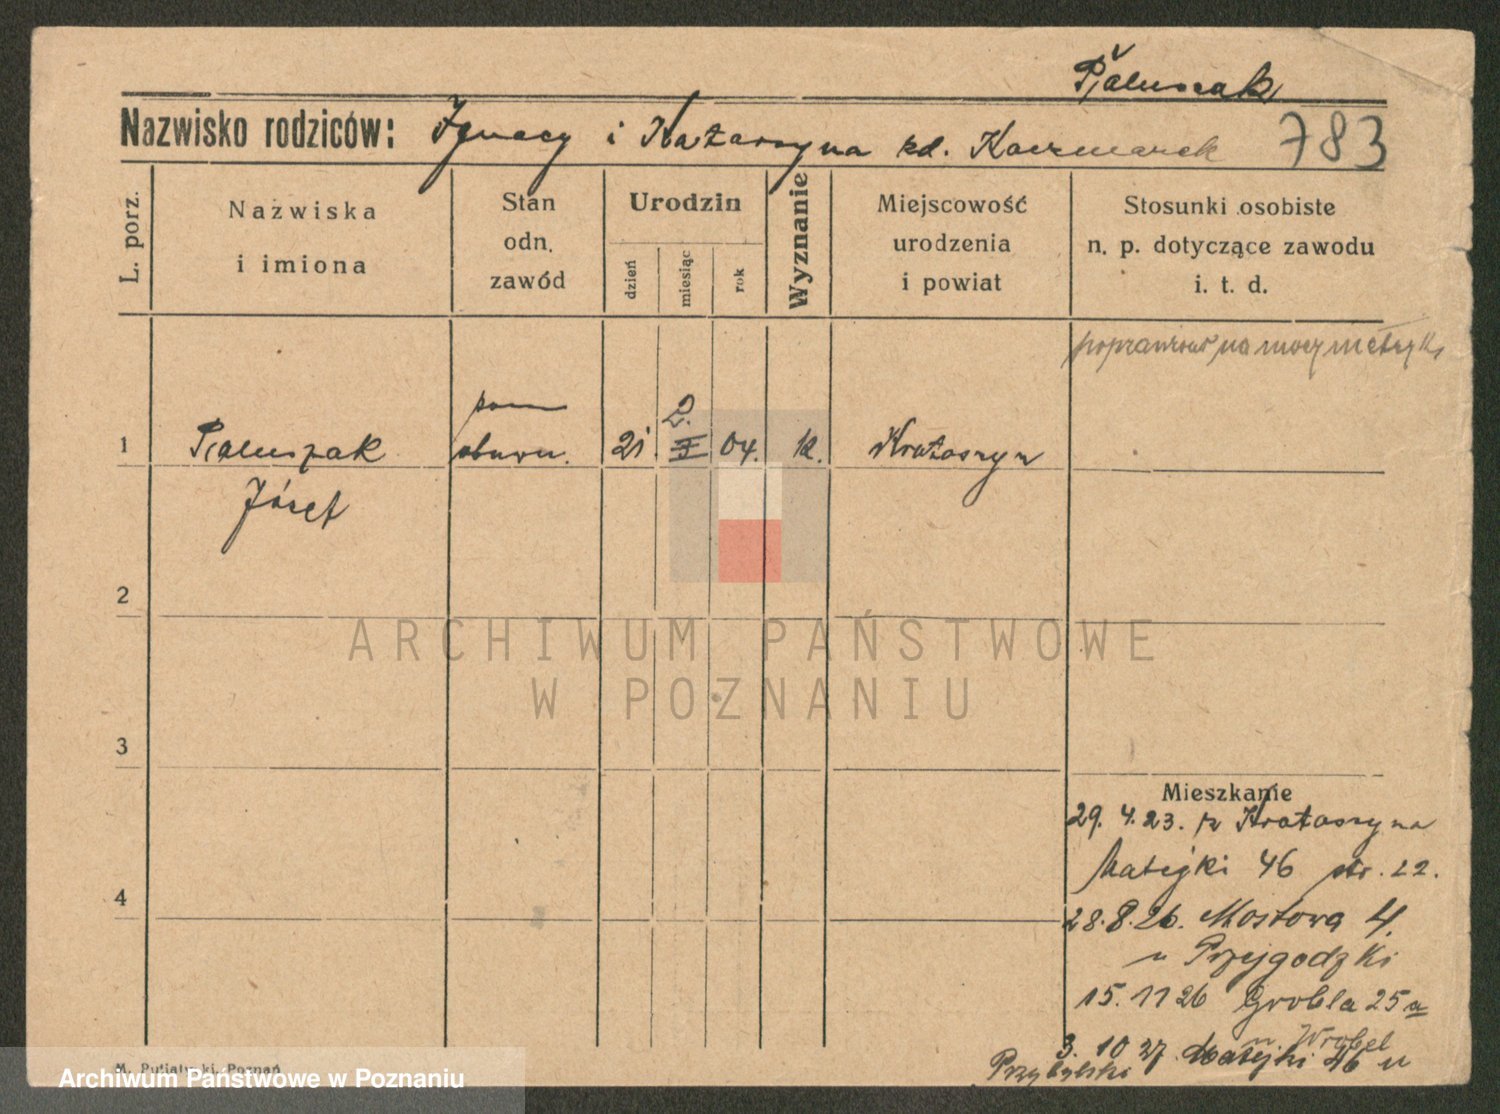 Pałuszak
Nazwisko rodziców: Ignacy i Katarzyna zd. Kaczmarek 783
L. porz.
Nazwiska
i imiona
Stan
odn.
zawód
Urodzin
dzień
miesiąc
rok
Wyznanie
Miejscowość
urodzenia
i powiat
Stosunki osobiste
n. p. dotyczące zawodu
i. t. d.
na mocy metryki
2.
1 Pałuszak 21 04. k. Krotoszyn
Józef
2
3
4
Mieszkanie
29. 4. 23. z Krotoszyna
Matejki 46 22.
28. 8. 26. Mostowa 4.
u Przygodzki
15. 11 26 Grobla 25 a
u Wrobel
3. 10 27. Matejki 46 u
Przybylski
M. Putiatycki, Poznań
ARCHIWUM PAŃSTWOWE
W POZNANIU
Archiwum Państwowe w Poznaniu